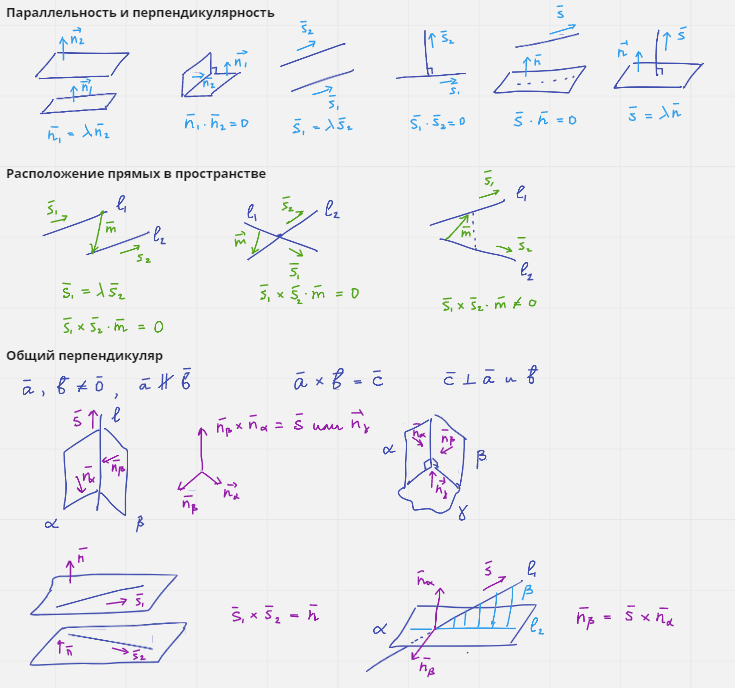 Параллельность и перпендикулярность
n̄₂ n̄₁ n̄₁ = λn̄₂
n̄₁ n̄₂ n̄₁ · n̄₂ = 0
s̄₂ s̄₁ s̄₁ = λs̄₂
s̄₂ s̄₁ s̄₁ · s̄₂ = 0
s̄ n̄ s̄ · n̄ = 0
n̄ s̄ s̄ = λn̄
Расположение прямых в пространстве
s̄₁ l₁ m̄ l₂ s̄₂
s̄₁ = λs̄₂
s̄₁ × s̄₂ · m̄ = 0
l₁ s̄₂ l₂ m̄ s̄₁
s̄₁ × s̄₂ · m̄ = 0
s̄₁ l₁ m̄ s̄₂ l₂
s̄₁ × s̄₂ · m̄ ≠ 0
Общий перпендикуляр
ā, b̄ ≠ 0̄, ā ∦ b̄ ā × b̄ = c̄ c̄ ⊥ ā и b̄
s̄ l n̄α n̄β α β
n̄β × n̄α = s̄ или n̄γ
n̄β n̄α
n̄α n̄β α β n̄γ γ
n̄ s̄₁
n̄ s̄₂
s̄₁ × s̄₂ = n̄
n̄α s̄ l₁ β α l₂ n̄β
n̄β = s̄ × n̄α